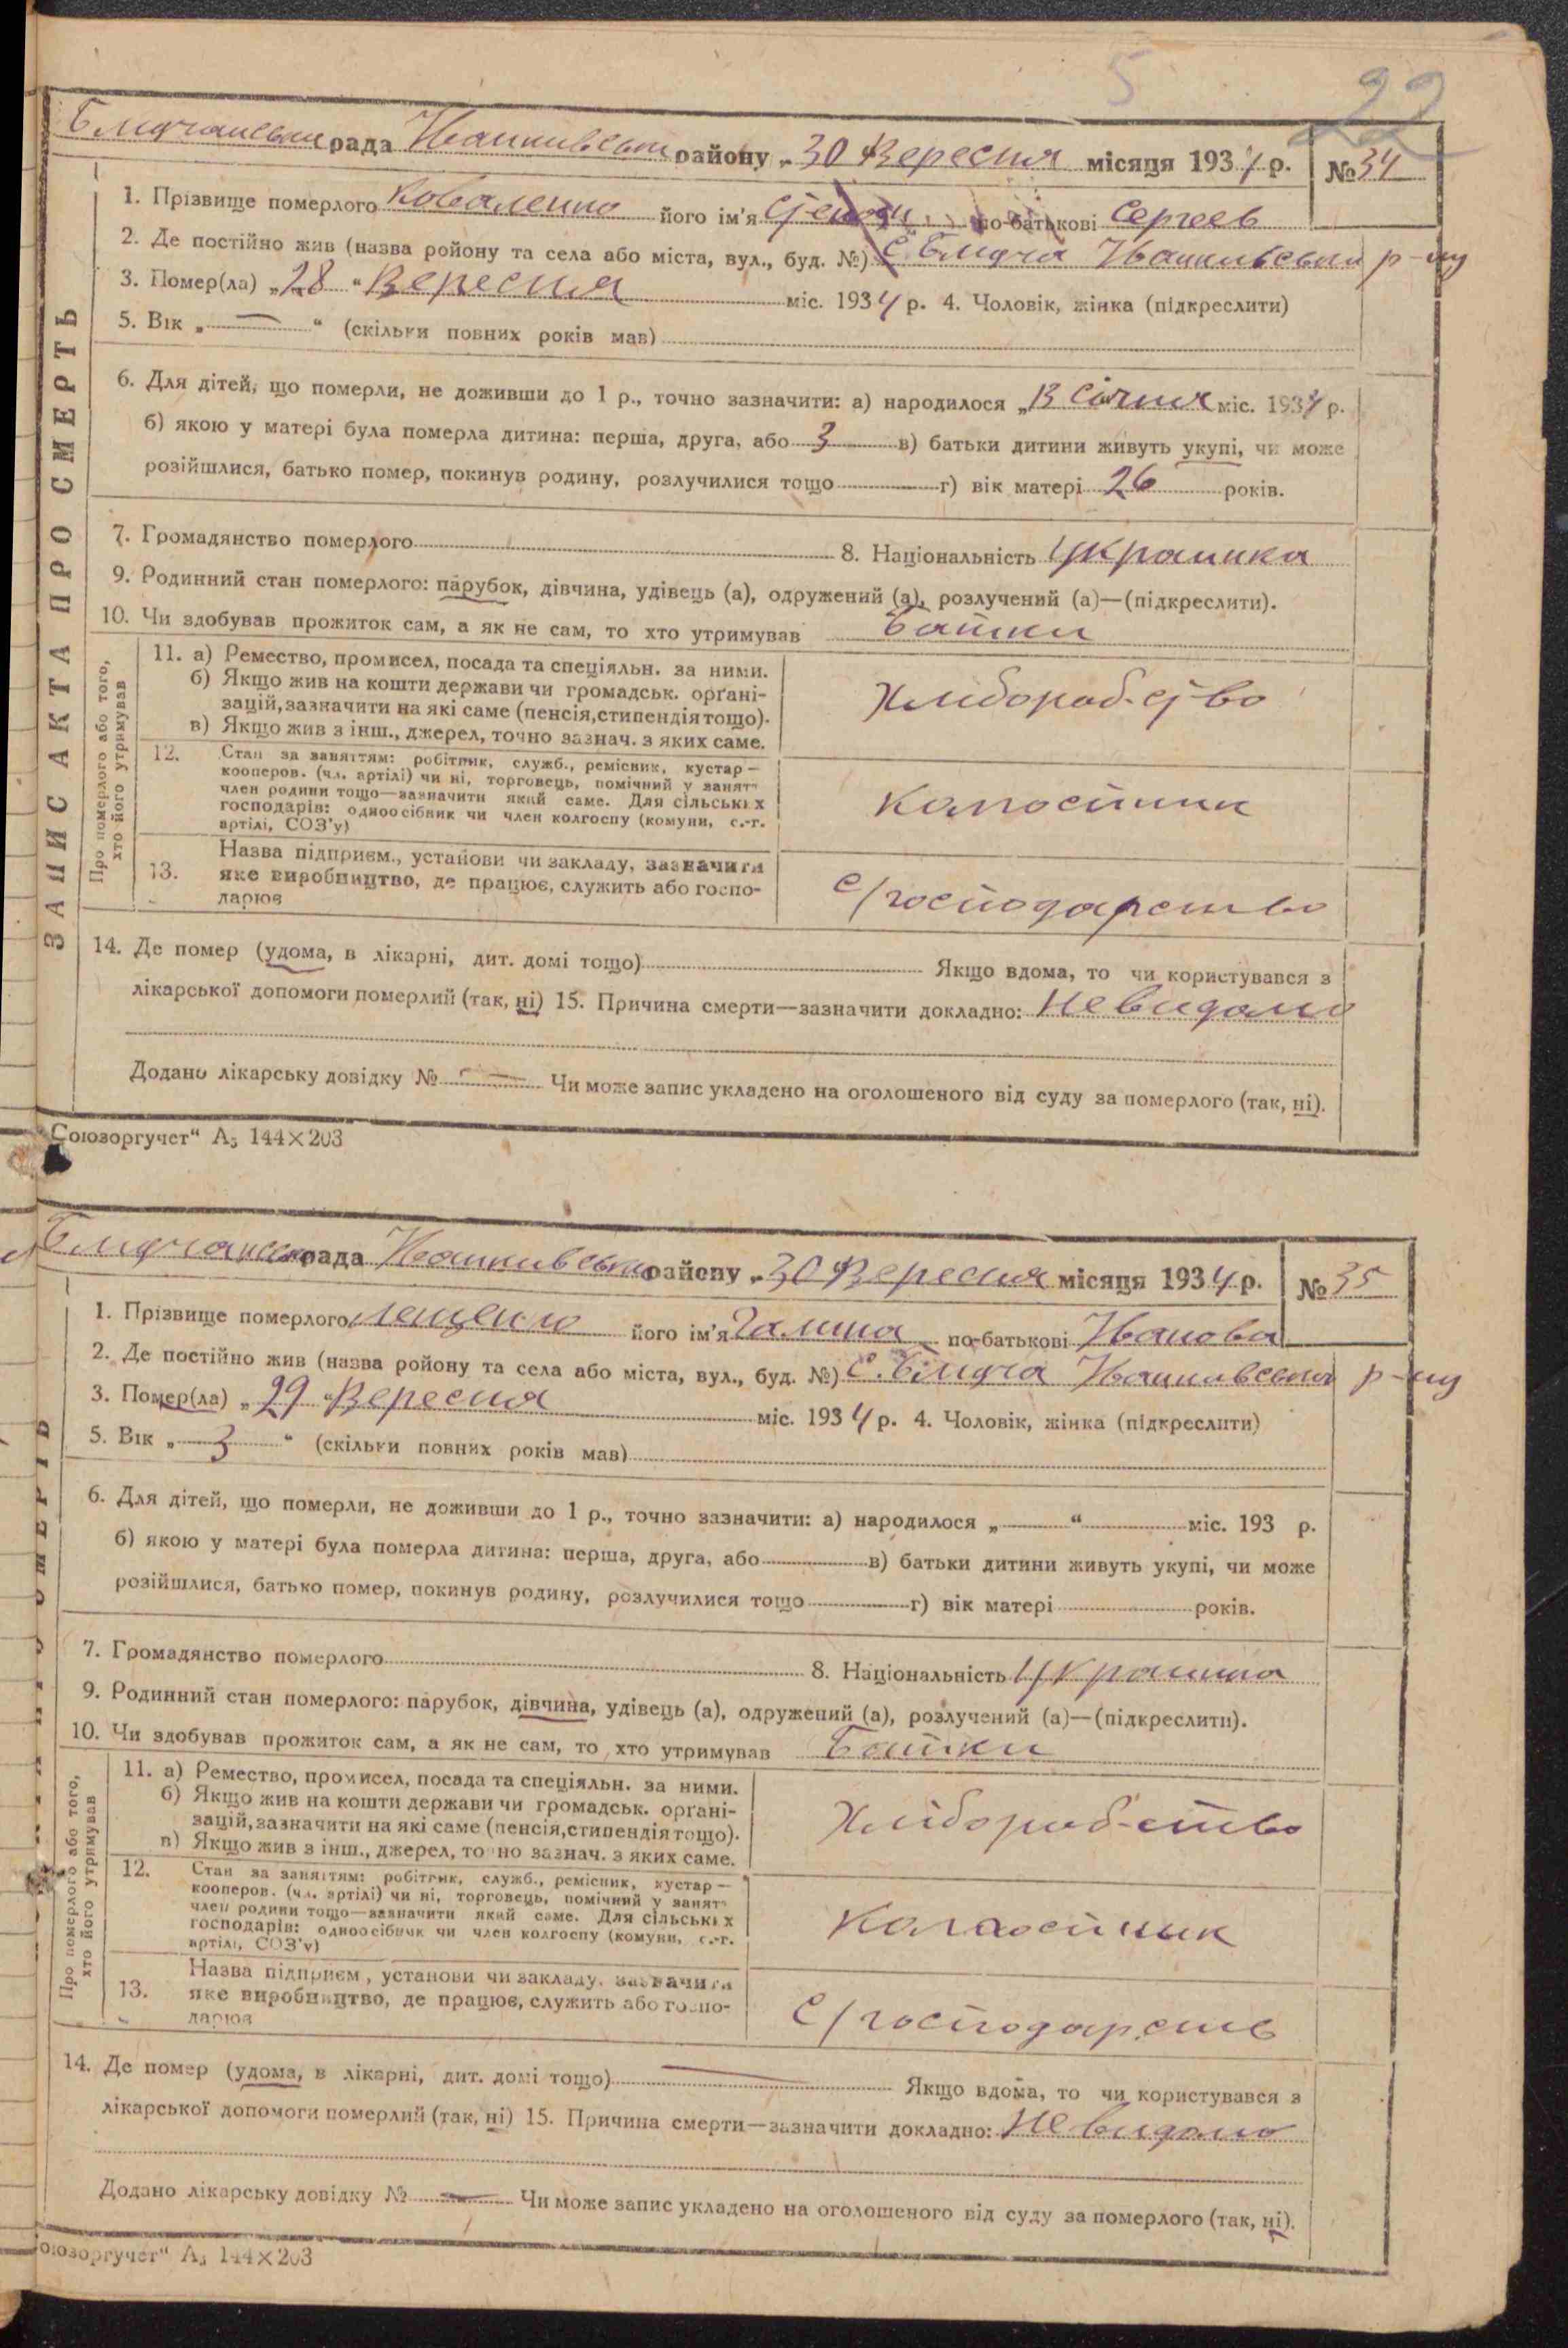 5 22
Блидчанськи рада Иванкивськи району „30 Вересня місяця 1934 р. № 34
1. Прізвище померлого Коваленко його ім'я по-батькові Сергеев
2. Де постійно жив (назва ройону та села або міста, вул., буд. №) с. Блидча Иванкивськи р-ну
3. Помер(ла) „28 “ Вересня міс. 1934 р. 4. Чоловік, жінка (підкреслити)
5. Вік „ — “ (скільки повних років мав)
6. Для дітей, що померли, не доживши до 1 р., точно зазначити: а) народилося „ Січня міс. 1934 р.
б) якою у матері була померла дитина: перша, друга, або 3 в) батьки дитини живуть укупі, чи може
розійшлися, батько помер, покинув родину, розлучилися тощо г) вік матері 26 років.
7. Громадянство померлого 8. Національність Украинка
9. Родинний стан померлого: парубок, дівчина, удівець (а), одружений (а), розлучений (а)—(підкреслити).
10. Чи здобував прожиток сам, а як не сам, то хто утримував Батьки
ЗАПИС АКТА ПРО СМЕРТЬ
Про померлого або того,
хто його утримував
11. а) Ремество, промисел, посада та спеціяльн. за ними.
б) Якщо жив на кошти держави чи громадськ. орґані-
зацій, зазначити на які саме (пенсія, стипендія тощо).
в) Якщо жив з інш., джерел, точно зазнач. з яких саме.
Хлибороб-ство
12. Стан за заняттям: робітник, служб., ремісник, кустар —
кооперов. (чл. артілі) чи ні, торговець, помічний у занятт
член родини тощо—зазначити який саме. Для сільських
господарів: одноосібник чи член колгоспу (комуни, с.-г.
артілі, СОЗ'у)
Калгостник
13. Назва підприєм., установи чи закладу, зазначити
яке виробництво, де працює, служить або госпо-
дарює
С/господарство
14. Де помер (удома, в лікарні, дит. домі тощо) Якщо вдома, то чи користувався з
лікарської допомоги померлий (так, ні) 15. Причина смерти—зазначити докладно: Невидомо
Додано лікарську довідку № — Чи може запис укладено на оголошеного від суду за померлого (так, ні).
Союзоргучет“ А₅ 144×203
Блидчанськи рада Иванкивськи району „30 Вересня місяця 1934 р. № 35
1. Прізвище померлого Лещенко його ім'я Галина по-батькові Иванова
2. Де постійно жив (назва ройону та села або міста, вул., буд. №) с. Блидча Иванкивськи р-ну
3. Помер(ла) „ 29 “ Вересня міс. 1934 р. 4. Чоловік, жінка (підкреслити)
5. Вік „ 3 “ (скільки повних років мав)
6. Для дітей, що померли, не доживши до 1 р., точно зазначити: а) народилося „ “ міс. 193 р.
б) якою у матері була померла дитина: перша, друга, або в) батьки дитини живуть укупі, чи може
розійшлися, батько помер, покинув родину, розлучилися тощо г) вік матері років.
7. Громадянство померлого 8. Національність Украинка
9. Родинний стан померлого: парубок, дівчина, удівець (а), одружений (а), розлучений (а)—(підкреслити).
10. Чи здобував прожиток сам, а як не сам, то хто утримував Батьки
Про померлого або того,
хто його утримував
11. а) Ремество, промисел, посада та спеціяльн. за ними.
б) Якщо жив на кошти держави чи громадськ. орґані-
зацій, зазначити на які саме (пенсія, стипендія тощо).
в) Якщо жив з інш., джерел, точно зазнач. з яких саме.
Хлибороб-ство
12. Стан за заняттям: робітник, служб., ремісник, кустар —
кооперов. (чл. артілі) чи ні, торговець, помічний у занятт
член родини тощо—зазначити який саме. Для сільських
господарів: одноосібник чи член колгоспу (комуни, с.-г.
артілі, СОЗ'у)
Калгостник
13. Назва підприєм., установи чи закладу, зазначити
яке виробництво, де працює, служить або госпо-
дарює
С/господарств
14. Де помер (удома, в лікарні, дит. домі тощо) — Якщо вдома, то чи користувався з
лікарської допомоги померлий (так, ні) 15. Причина смерти—зазначити докладно: Невидомо
Додано лікарську довідку № — Чи може запис укладено на оголошеного від суду за померлого (так, ні).
оюзоргучет“ А₅ 144×203